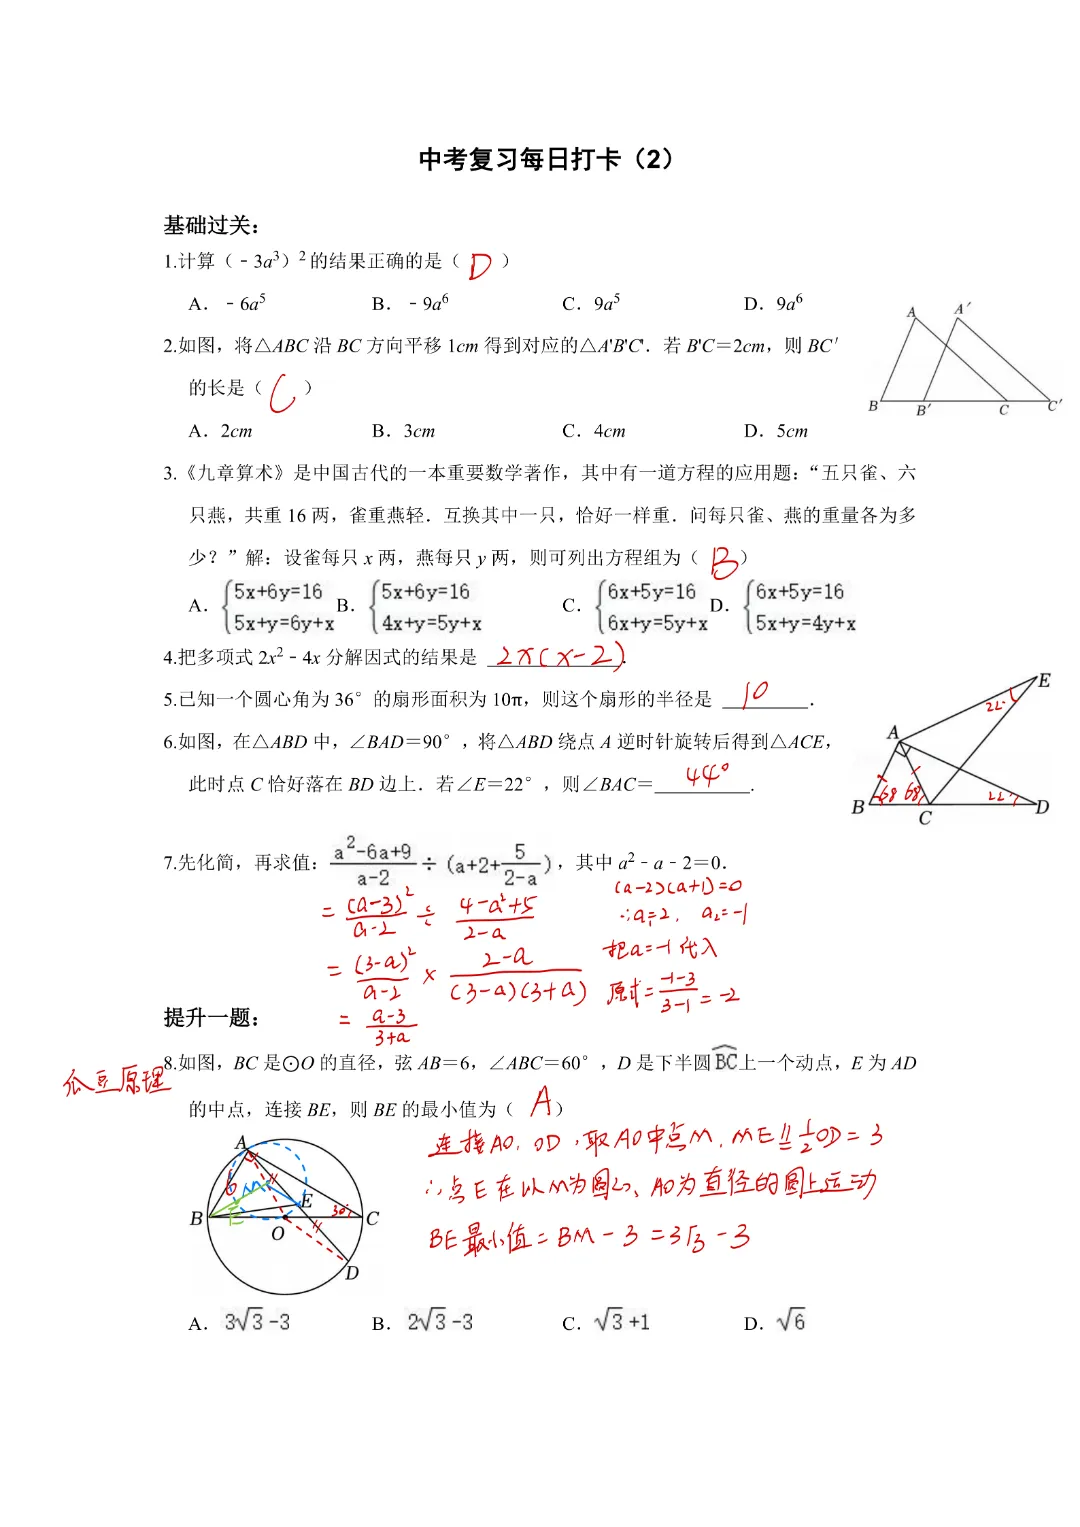 中考复习每日打卡（2）
基础过关：
1.计算（﹣3a³）²的结果正确的是（ D ）
A．﹣6a⁵ B．﹣9a⁶ C．9a⁵ D．9a⁶
2.如图，将△ABC 沿 BC 方向平移 1cm 得到对应的△A'B'C'．若 B'C＝2cm，则 BC′
的长是（ C ）
A．2cm B．3cm C．4cm D．5cm
A A′ B B′ C C′
3.《九章算术》是中国古代的一本重要数学著作，其中有一道方程的应用题：“五只雀、六
只燕，共重 16 两，雀重燕轻．互换其中一只，恰好一样重．问每只雀、燕的重量各为多
少？”解：设雀每只 x 两，燕每只 y 两，则可列出方程组为（ B ）
A．{5x+6y=16 B．{5x+6y=16 C．{6x+5y=16 D．{6x+5y=16
5x+y=6y+x 4x+y=5y+x 6x+y=5y+x 5x+y=4y+x
4.把多项式 2x²﹣4x 分解因式的结果是 2x(x-2)．
5.已知一个圆心角为 36°的扇形面积为 10π，则这个扇形的半径是 10．
6.如图，在△ABD 中，∠BAD＝90°，将△ABD 绕点 A 逆时针旋转后得到△ACE，
此时点 C 恰好落在 BD 边上．若∠E＝22°，则∠BAC＝44°.
E 22° A B 68 68 C 22° D
7.先化简，再求值：(a²-6a+9)/(a-2) ÷ (a+2+5/(2-a))，其中 a²﹣a﹣2＝0．
= (a-3)²/(a-2) ÷ (4-a²+5)/(2-a)
= (3-a)²/(a-2) × (2-a)/((3-a)(3+a))
= (a-3)/(3+a)
(a-2)(a+1)=0
∴a₁=2, a₂=-1
把a=-1代入
原式=(-1-3)/(3-1)=-2
提升一题：
瓜豆原理
8.如图，BC 是⊙O 的直径，弦 AB＝6，∠ABC＝60°，D 是下半圆BC上一个动点，E 为 AD
的中点，连接 BE，则 BE 的最小值为（ A ）
A 6 M E 30° B E O C D
连接AO，OD，取AO中点M，ME∥=1/2OD=3
∴点E在以M为圆心、AO为直径的圆上运动
BE最小值=BM-3=3√3-3
A．3√3-3 B．2√3-3 C．√3+1 D．√6